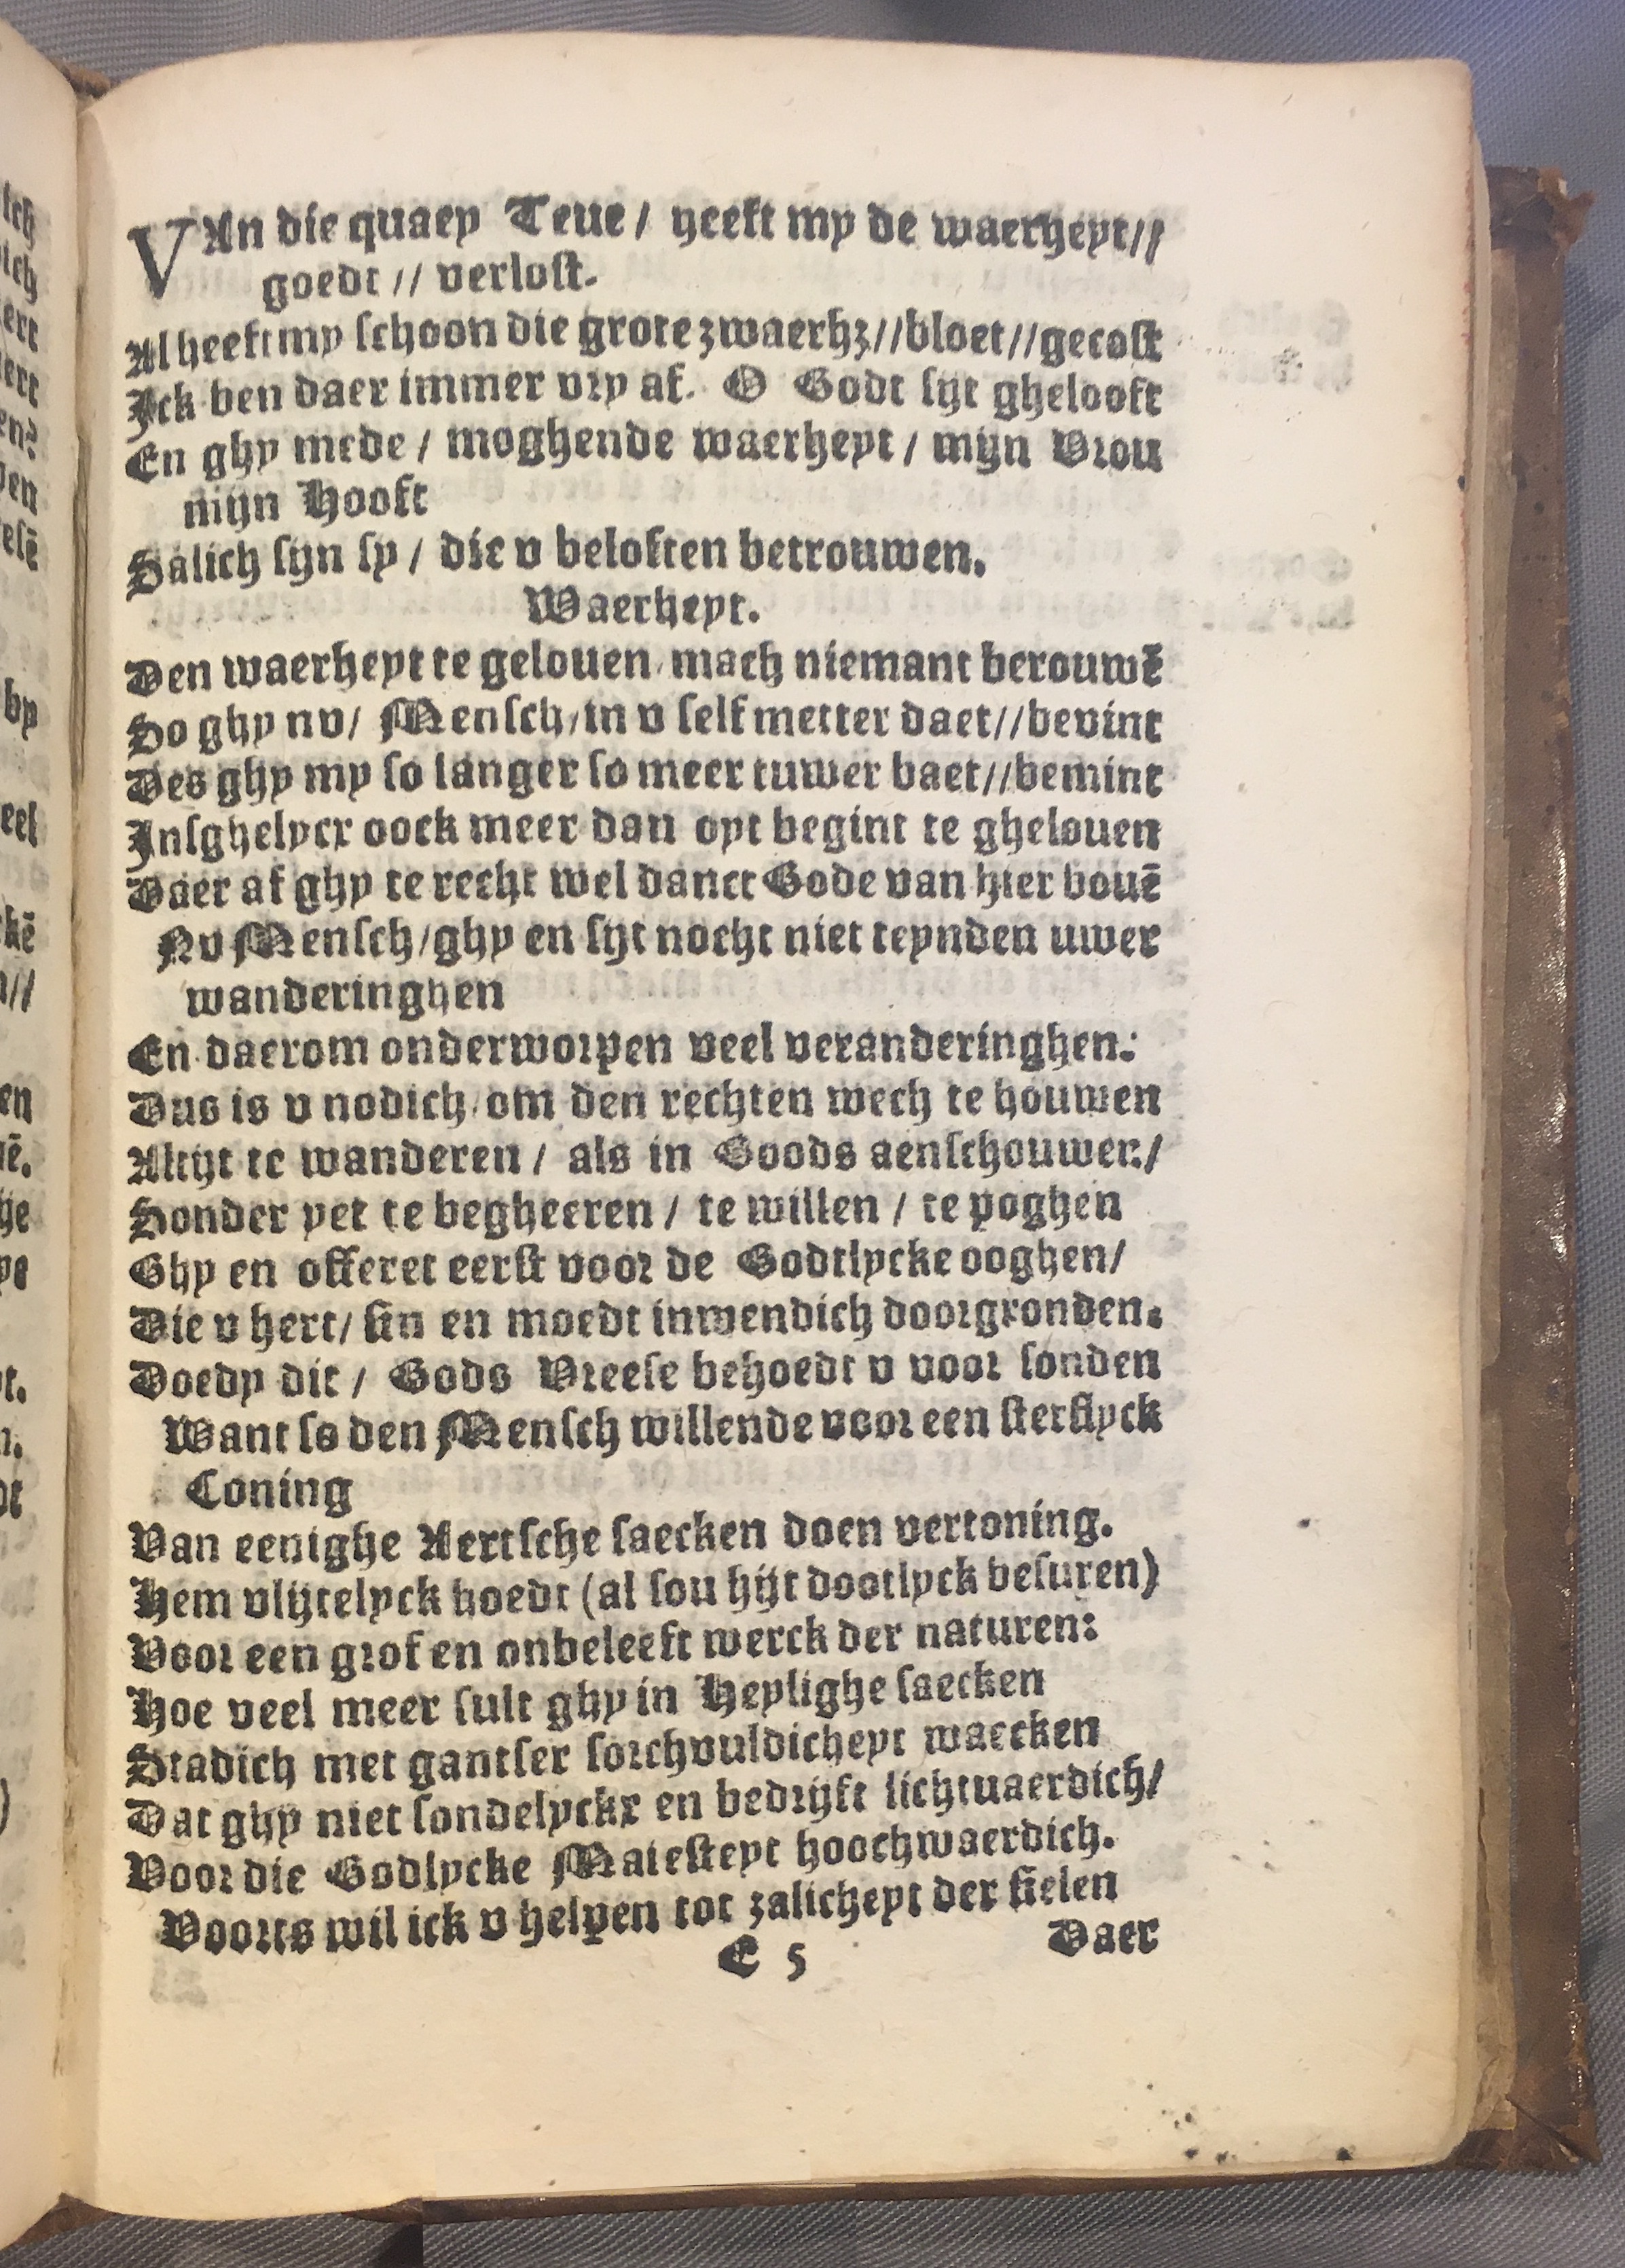 VAn die quaey Teue / heeft my de waerheyt//
goedt // verlost.
Al heeft my schoon die grote zwaerhz//bloet//gecost
Ick ben daer immer vry af. O Godt sijt ghelooft
En ghy mede / moghende waerheyt / mijn Vrou
mijn Hooft
Salich sijn sy / die v beloften betrouwen.
Waerheyt.
Den waerheyt te gelouen / mach niemant berouwē
So ghy nv / Mensch / in v self metter daet//bevint
Des ghy my so langer so meer tuwer baet//bemint
Insghelycx oock meer dan oyt begint te ghelouen
Daer af ghy te recht wel danct Gode van hier bouē
Nv Mensch / ghy en sijt nocht niet teynden uwer
wanderinghen
En daerom onderworpen veel veranderinghen:
Dus is v nodich / om den rechten wech te houwen
Altijt te wanderen / als in Goods aenschouwen /
Sonder yet te begheeren / te willen / te poghen
Ghy en offeret eerst voor de Godtlycke ooghen /
Die v hert / sin en moedt inwendich doorgronden.
Doedy dit / Gods Vreese behoedt v voor sonden
Want so den Mensch willende voor een sterflyck
Coning
Van eenighe Aertsche saecken doen vertoning.
Hem vlijtelyck hoedt (al sou hijt dootlyck besuren)
Voor een grof en onbeleeft werck der naturen:
Hoe veel meer sult ghy in Heylighe saecken
Stadich met gantser sorchvuldicheyt waecken
Dat ghy niet sondelyckx en bedrijft lichtuaerdich /
Voor die Godlycke Maiesteyt hoochwaerdich.
Voorts wil ick v helpen tot zalicheyt der sielen
C 5
Daer